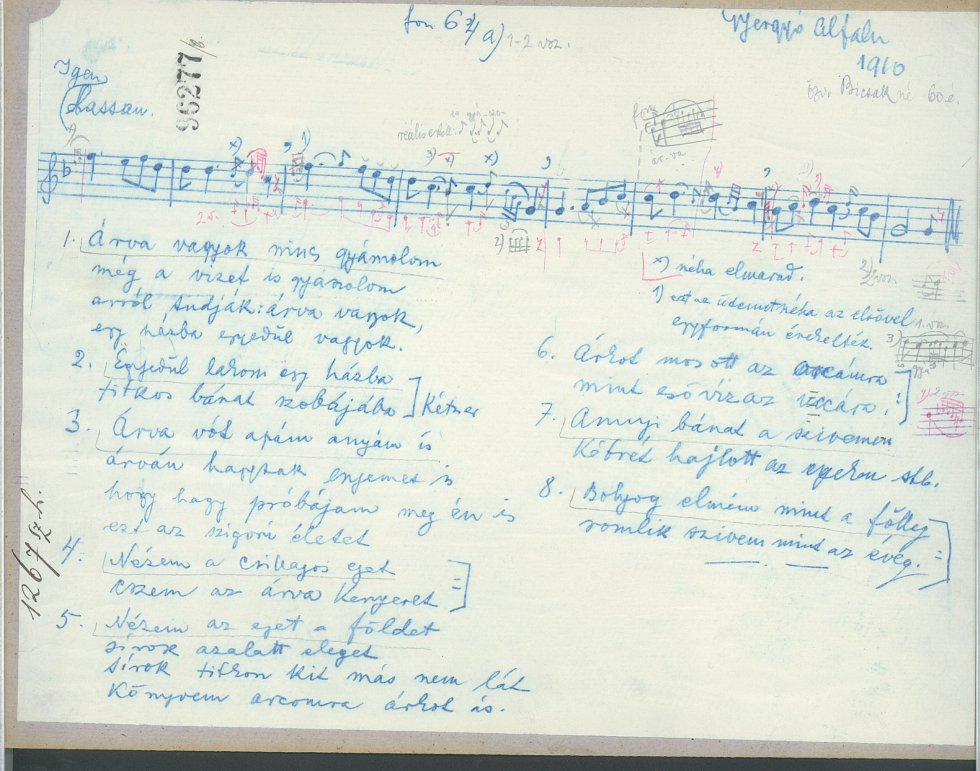 fon 634 a) 1-2 vsz.
Gyergyó Alfalu
1910
özv. Bicsak né 60 é.
Igen
Lassan.
96277/b.
x) néha elmarad.
1) ezt az ütemet néha az elsővel
egyformán énekelték.
1. Árva vagyok nincs gyámolom
még a vizet is gyámolom
arról tudják: árva vagyok,
egy házba egyedűl vagyok.
2. Egyedűl lakom egy házba
titkos bánat szobájába ] Kétszer
3. Árva vót apám anyám is
árván hagytak engemet is
hogy hagy próbájam meg én is
ezt az szigorú életet
4. Nézem a csillagos eget
eszem az árva kenyeret
5. Nézem az eget a földet
sírok azalatt eleget
sírok titkon kit más nem lát
Könyvem arcomra árkot ás.
6. Árkot mosott az arcámra
mint eső víz az uccára
7. Annyi bánat a szivemen
Kétrét hajlott az egeken stb.
8. Bolyog elmém mint a fölleg
romlik szivem mint az évég.
1267 z h.